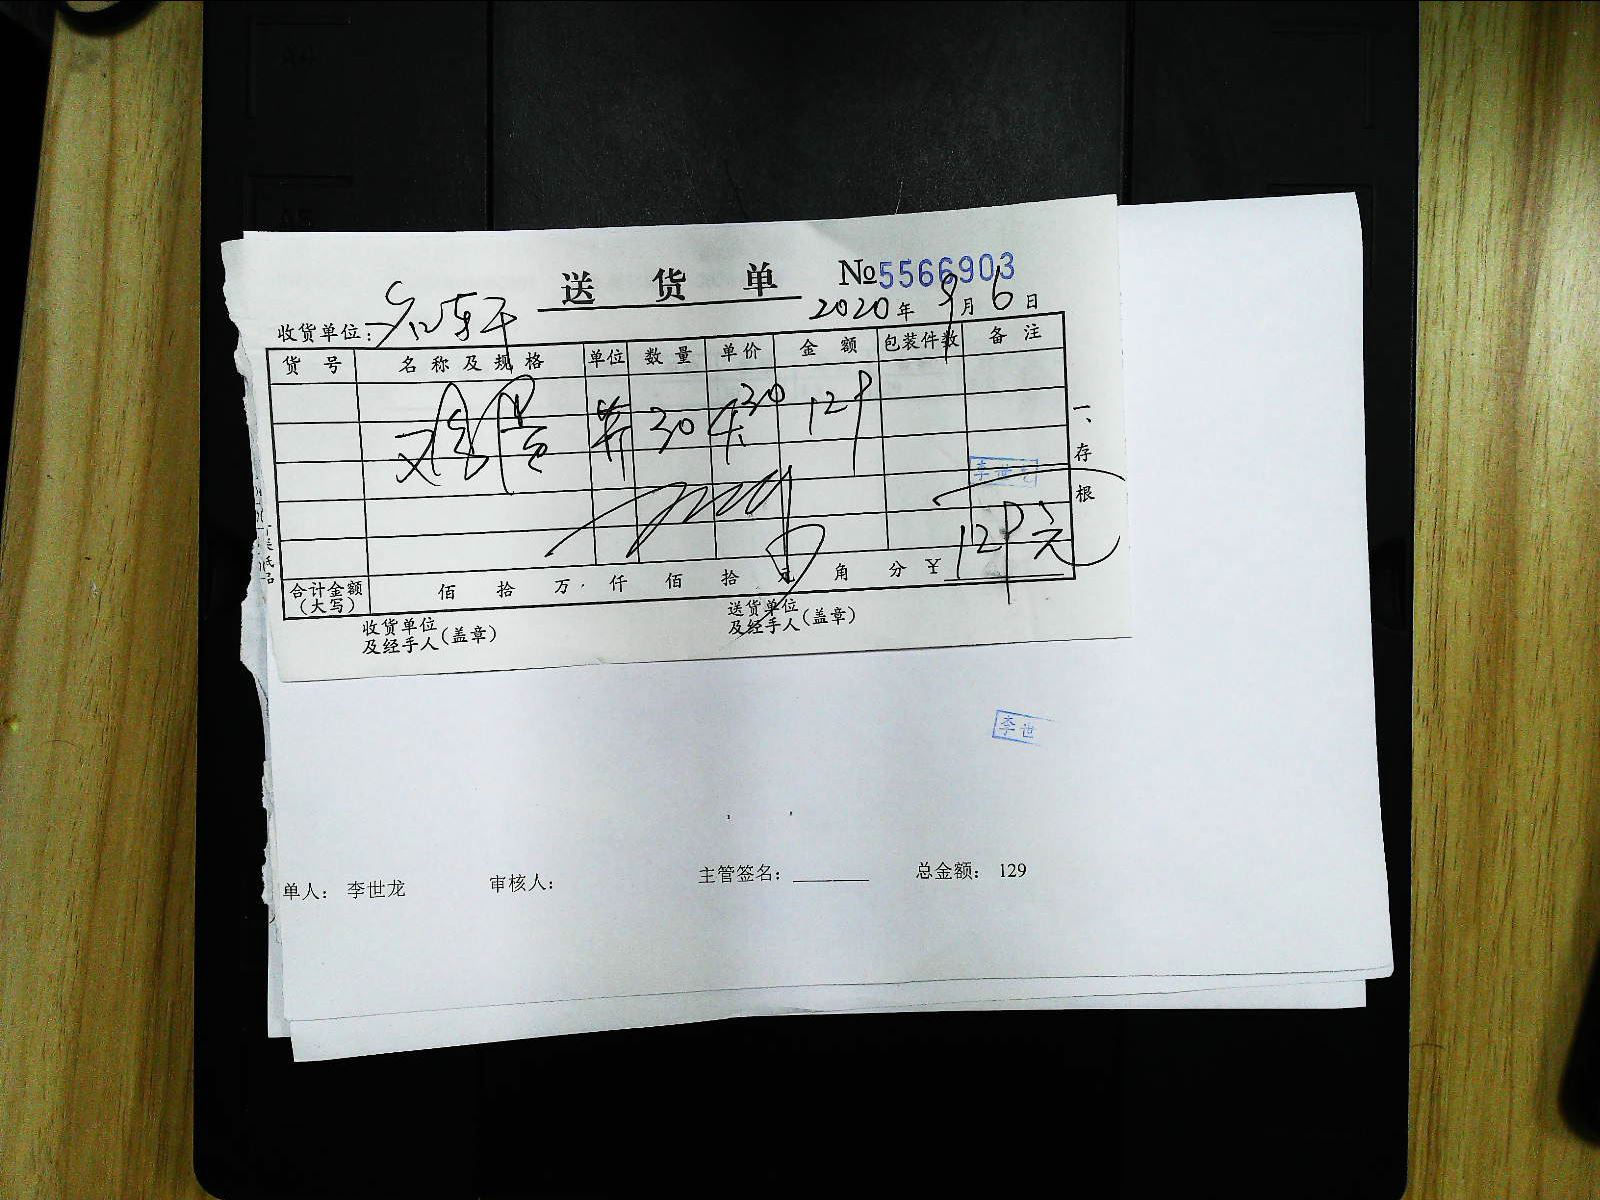 送货单 №5566903
收货单位: 2020年9月6日
货号 名称及规格 单位 数量 单价 金额 包装件数 备注
鸡蛋 30 4.30 129
李世龙
129元
合计金额(大写) 佰 拾 万 仟 佰 拾 元 角 分 ¥
收货单位及经手人(盖章) 送货单位及经手人(盖章)
一、存根
李世
单人: 李世龙 审核人: 主管签名: 总金额: 129